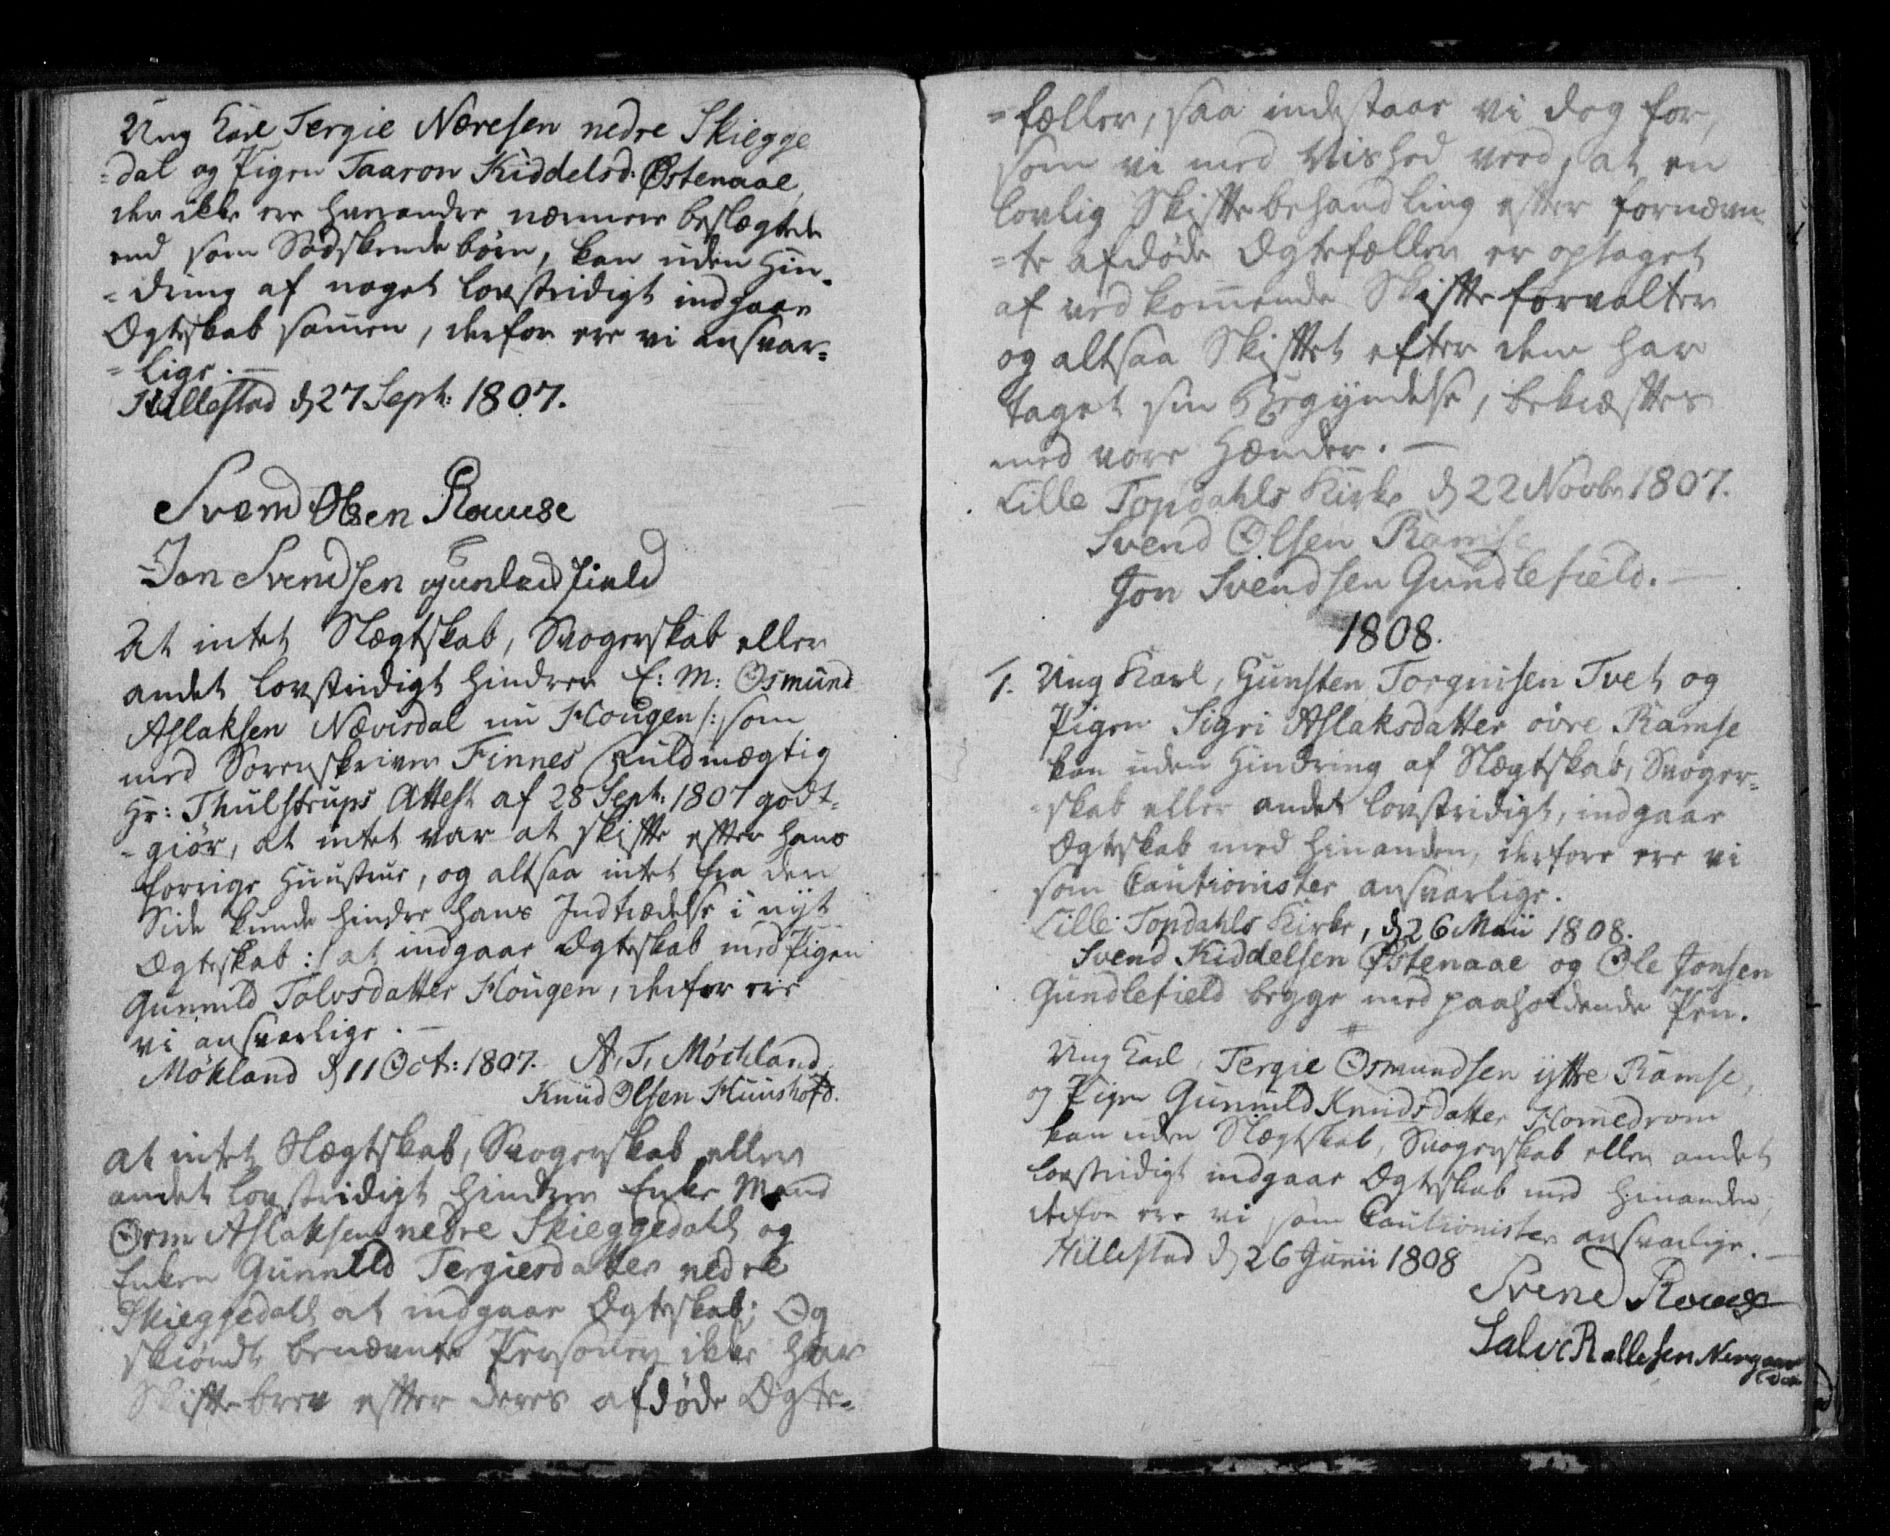 Ung Karl Tergie Neresen nedre Skiegge
=dal og Pigen Taaron Kiddelsd. Østenaae,
der ikke ere hverandre nærmere beslægtede
end som Sødskendebørn, kan uden Hin-
=dring af noget lovstridigt indgaae
Ægteskab samen, derfor ere vi ansvar=
=lige. —
Hillestad d 27 Sept: 1807.
Svend Olsen Ramse
Jon Svendsen gunled field
At intet Slægtskab, Svogerskab eller
andet lovstridigt hindrer E: M: Osmund
Aslaksen Nævisdal nu Hougen /: som
med Sorenskriver Finnes Fuldmægtig
Hr: Thulstrups Attest af 28 Sept: 1807 godt=
=giør, at intet var at skifte efter hans
forrige Huustrue, og altsaa intet fra den
Side kunde hindre hans Indtrædelse i nyt
Ægteskab :/ at indgaae Ægteskab med Pigen
Gunnild Tolvsdatter Hougen, derfor ere
vi ansvarlige. —
Mökland d 11 Oct: 1807. A. T. Möchland
Knud Olsen Huushofd.
At intet Slægtskab, Svogerskab eller
andet lovstridigt hindrer Enke Mand
Orm Aslaksen nedre Skieggedahl og
Enken Gunnild Tergiesdatter nedre
Skieggedahl at indgaae Ægteskab; Og
skiøndt benævnte Personer ikke har
Skiftebrev efter deres afdøde Ægte=
=fæller, saa indestaar vi dog for,
som vi med Vished veed, at en
lovlig Skiftebehandling efter fornævn
=te afdøde Ægtefæller er optaget
af vedkommende Skifteforvalter
og altsaa Skiftet efter dem har
taget sin Begyndelse, bekræftes
med vore Hænder. —
Lille Topdahls Kirke d 22 Novbr 1807.
Svend Olsen Ramse
Jon Svendsen Gundlefield. —
1808.
1. Ung Karl, Gunsten Torgrisen Tvet og
Pigen Sigri Aslaksdatter øvre Ramse
kan uden Hindring af Slægtskab, Svoger=
=skab eller andet lovstridigt, indgaae
Ægteskab med hinanden, derfore ere vi
som Cautionister ansvarlige.
Lille Topdahls Kirke, d 26 Maii 1808.
Svend Kiddelsen Østenaae og Ole Jonsen
Gundlefield begge med paaholdende Pen.
Ung Karl, Tergie Osmundsen yttre Ramse,
og Pigen Gunnild Knudsdatter Homedrom
kan uden Slægtskab, Svogerskab eller andet
lovstridigt indgaae Ægteskab med hinanden,
derfor ere vi som Cautionister ansvarlige. —
Hillestad d 26 Junii 1808
Svend Ramse
Salve Rallesen